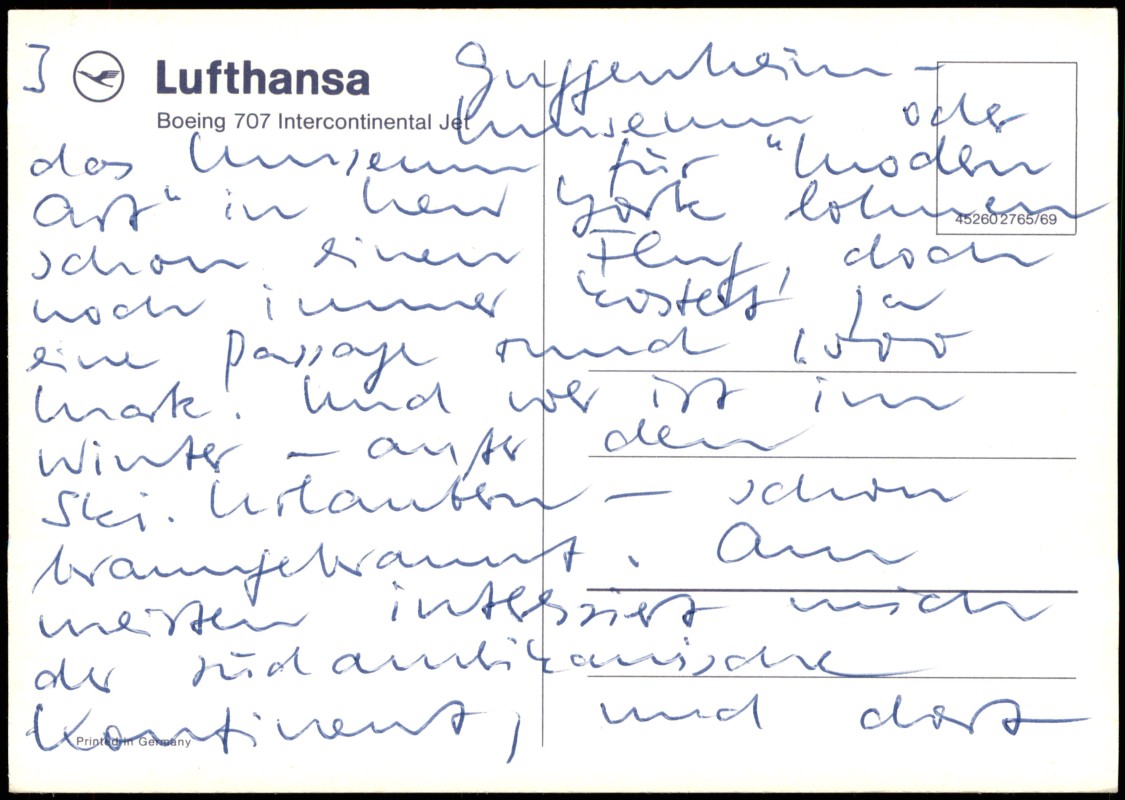 3
Lufthansa
Boeing 707 Intercontinental Jet
Guggenheim-
Museum oder
das Museum für "Modern
Art" in New York lohnen
45260 2765/69
schon einen Flug, doch
noch immer 'kostet' ja
eine Passage rund 1000
Mark. Und wer ist im
Winter – außer den
Ski-Urlaubern – schon
braungebrannt. Am
meisten interessiert mich
der südamerikanische
Kontinent, und dort
Printed in Germany